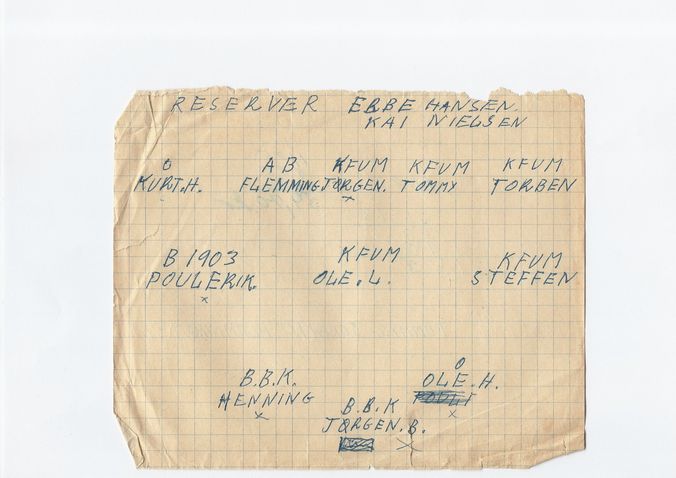 RESERVER EBBE HANSEN.
KAI NIELSEN
Ö AB KFUM KFUM KFUM
KURT.H. FLEMMING JØRGEN. TOMMY TORBEN
x
B 1903 KFUM KFUM
POULERIK. OLE.L. STEFFEN
x
Ö
B.B.K. OLE.H.
HENNING
x x
B.B.K
JØRGEN.B.
x